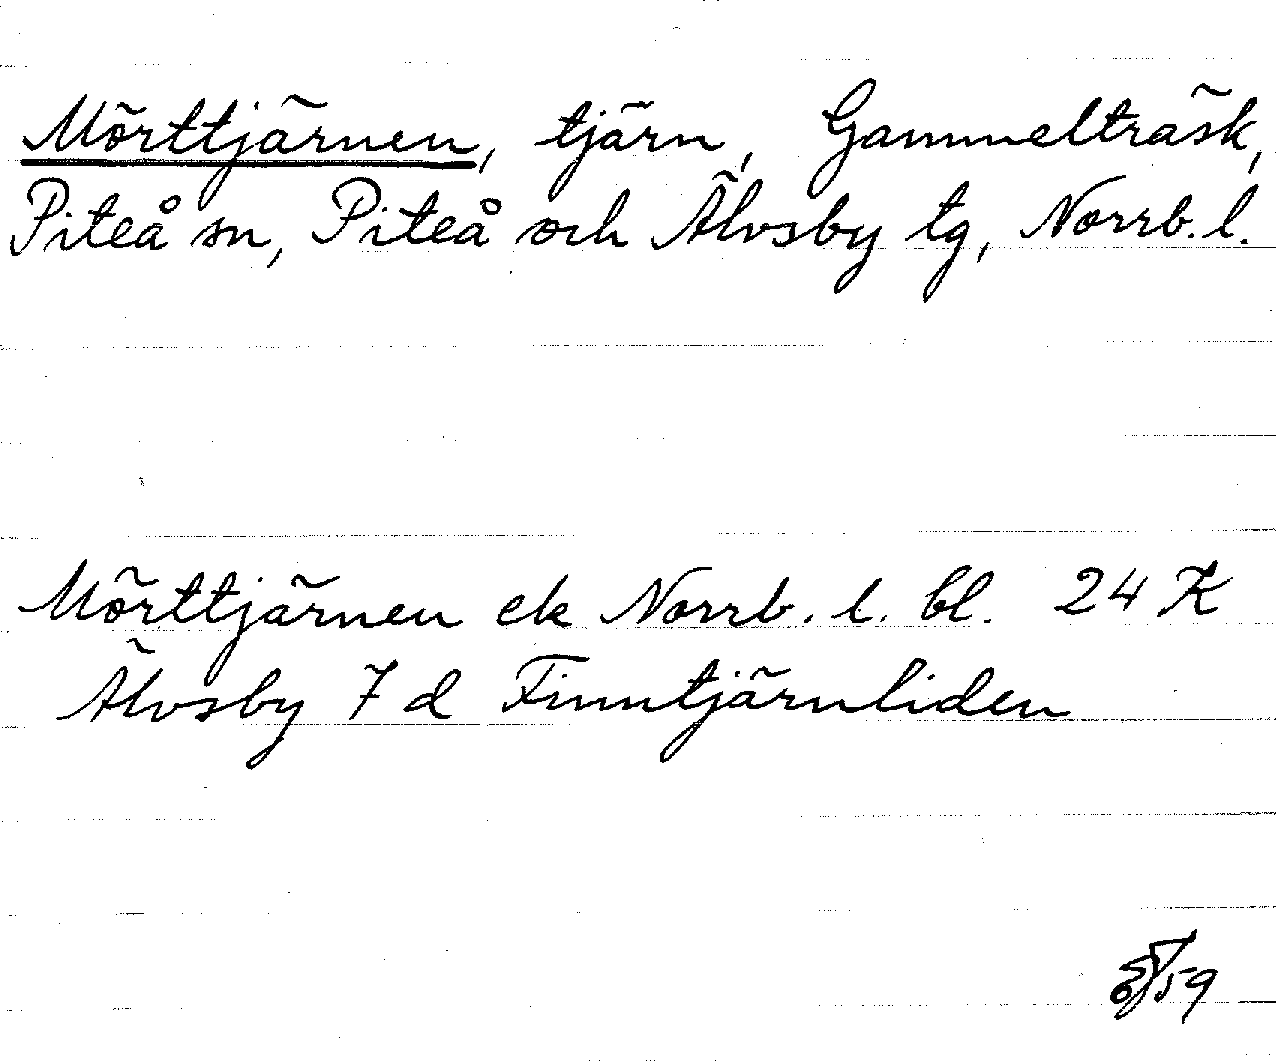 Mörttjärnen, tjärn, Gammelträsk,
Piteå sn, Piteå och Älvsby tg, Norrb. l.
Mörttjärnen ek Norrb. l. bl. 24 K
Älvsby 7 d Finntjärnliden
59